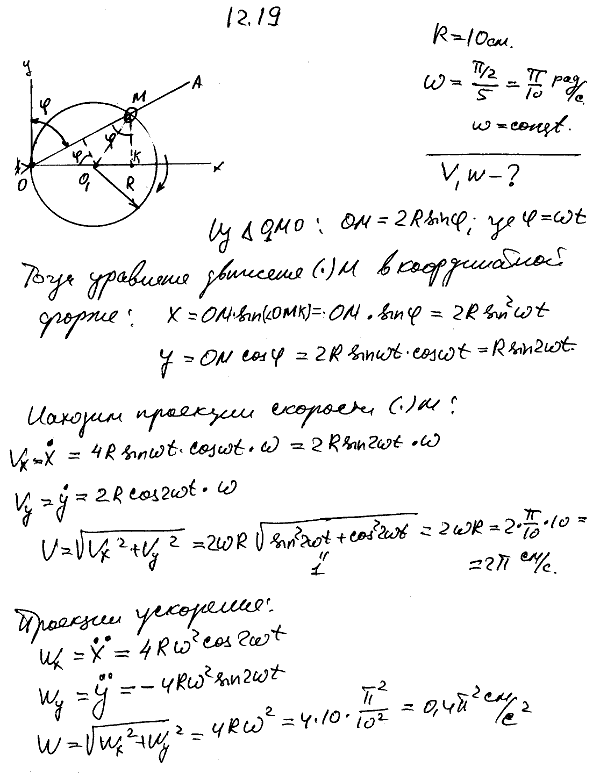 12.19
R = 10 см.
ω = (π/2)/5 = π/10 рад/с.
ω = const.
V, w - ?
y φ M A
φ φ
O O₁ R K x
Из Δ OMO : OM = 2R sinφ; где φ = ωt
Тогда уравнение движения (·)M в координатной
форме: X = OM·sin(∠OMK) = OM · sinφ = 2R sin²ωt
y = OM cosφ = 2R sinωt · cosωt = R sin2ωt.
Находим проекции скорости (·)M:
Vx = ẋ = 4R sinωt · cosωt · ω = 2R sin2ωt · ω
Vy = ẏ = 2R cos2ωt · ω
V = √(Vx² + Vy²) = 2ωR √(sin²2ωt + cos²2ωt) = 2ωR = 2·π/10·10 =
1
= 2π см/с.
Проекции ускорения:
Wx = ẍ = 4Rω² cos2ωt
Wy = ÿ = -4Rω² sin2ωt
W = √(Wx² + Wy²) = 4Rω² = 4·10·π²/10² = 0,4π² см/с²